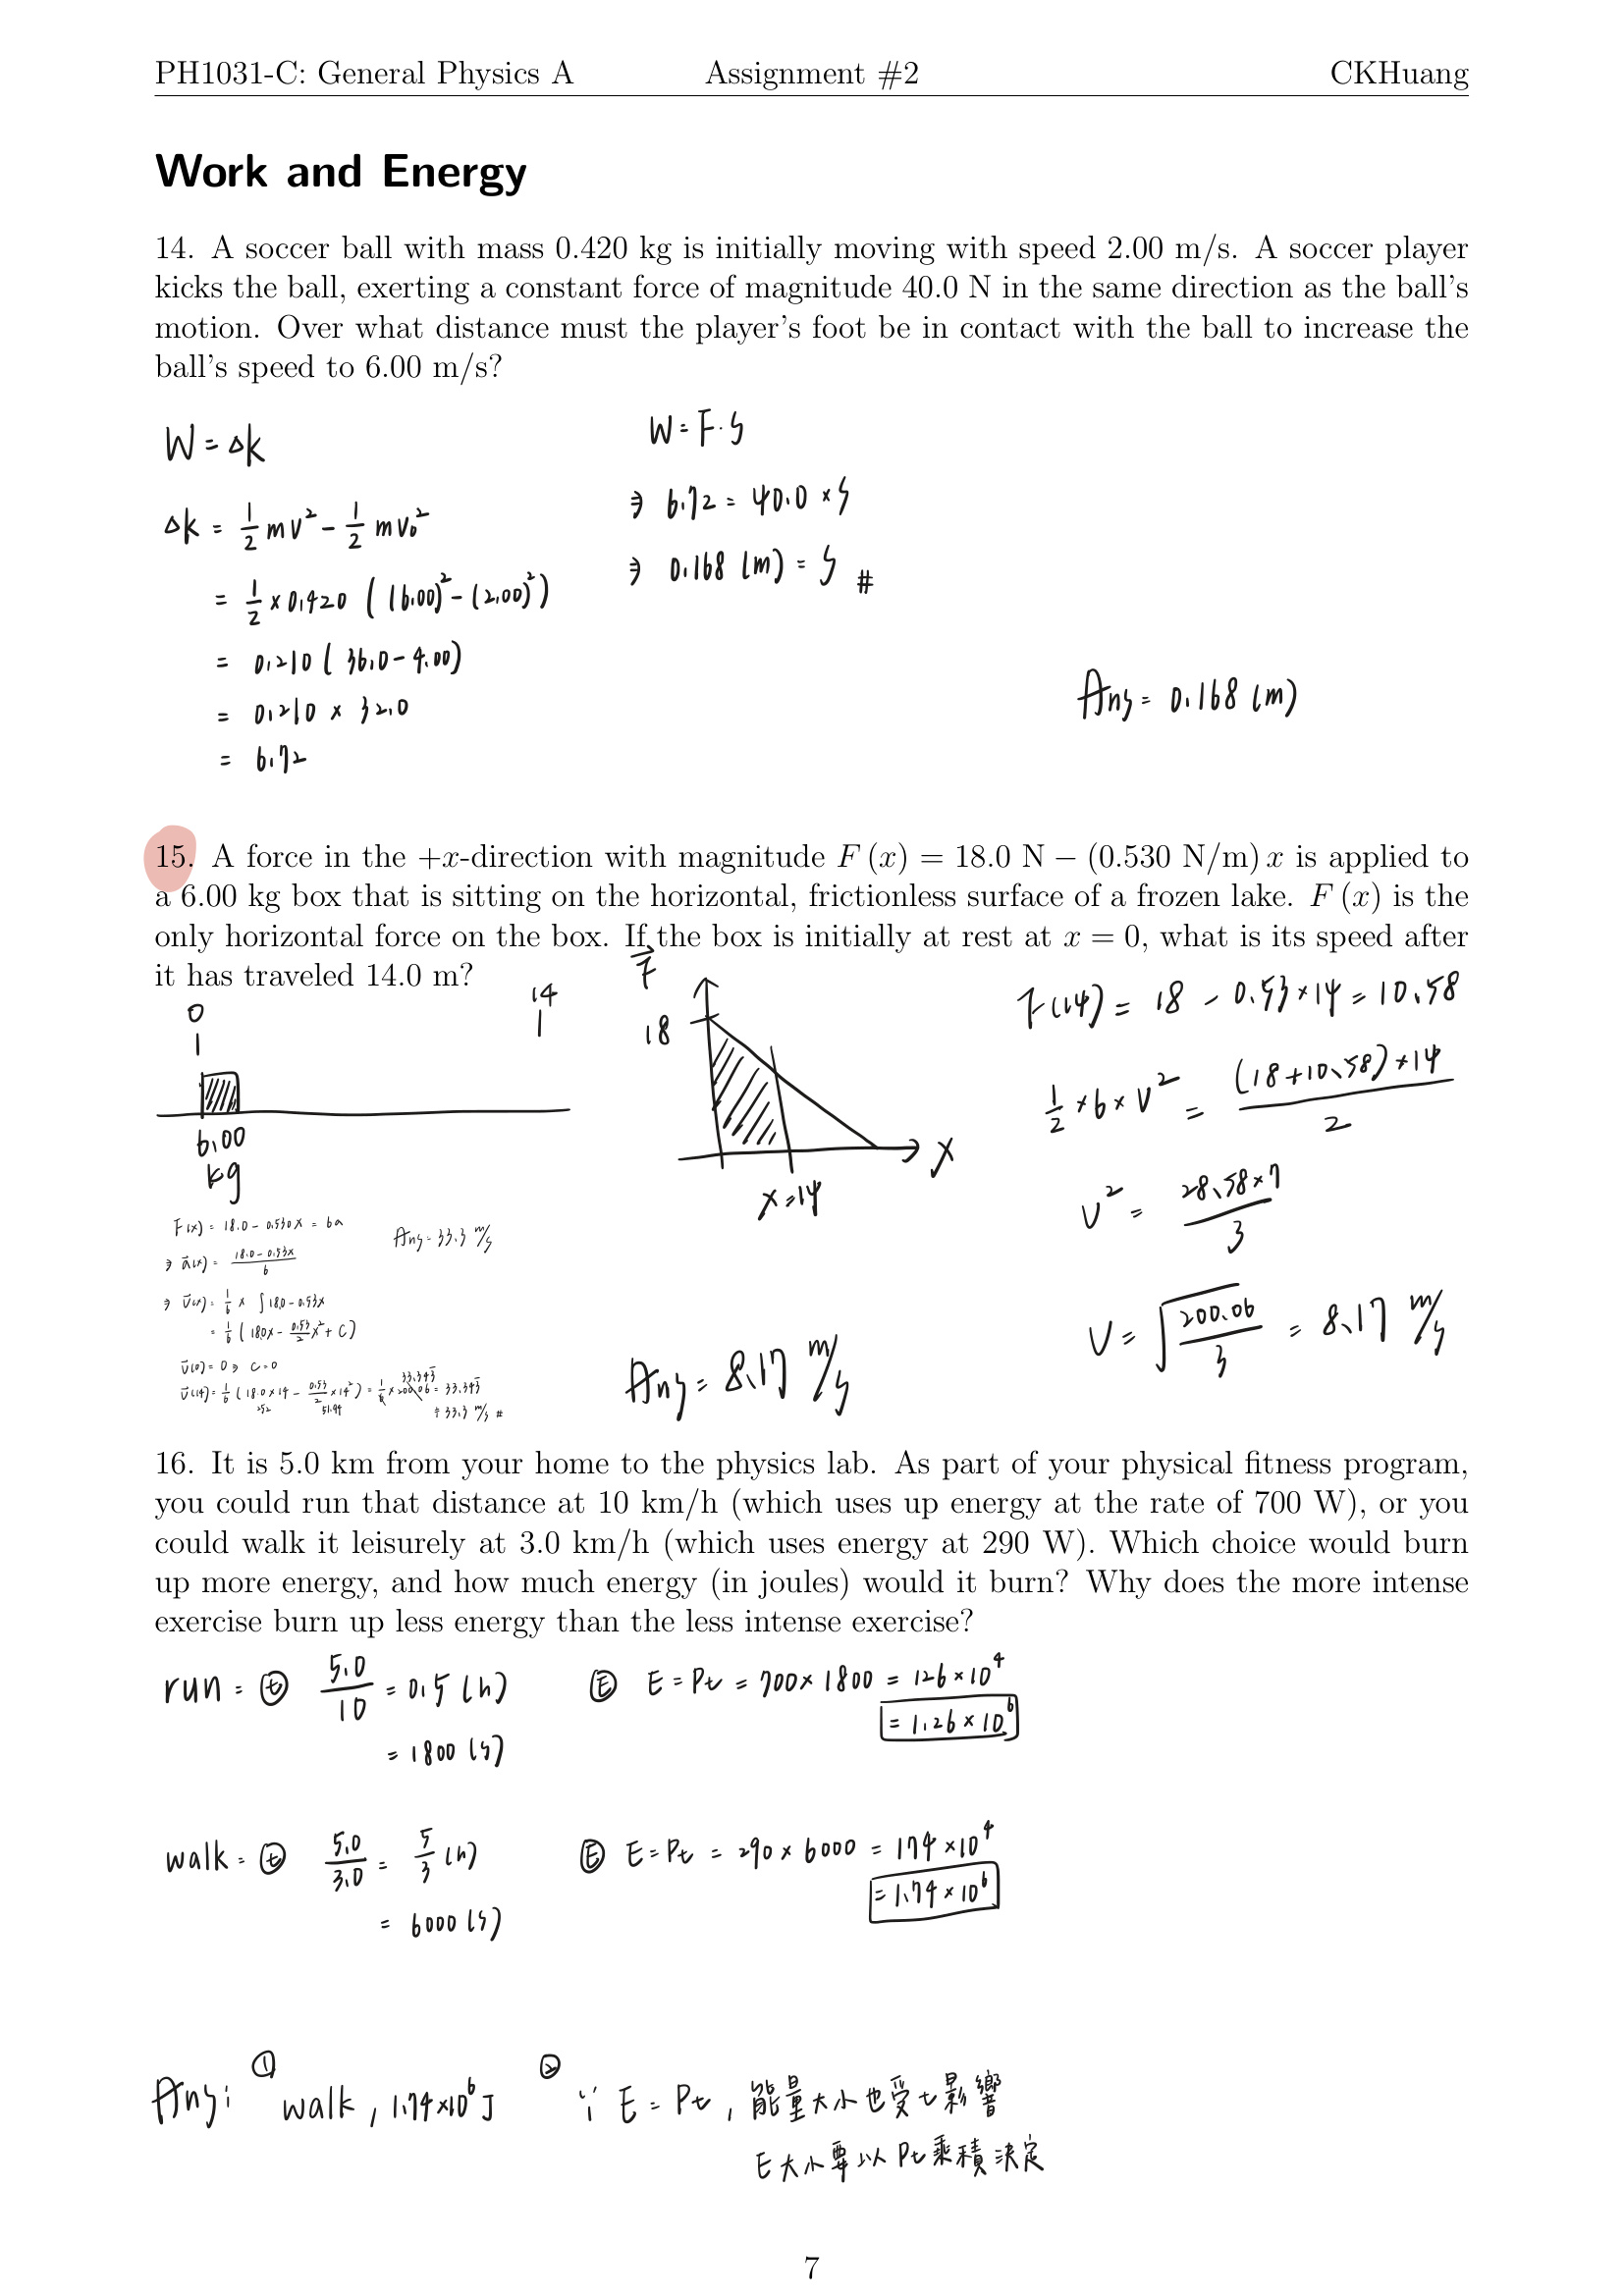 PH1031-C: General Physics A Assignment #2 CKHuang
Work and Energy
14. A soccer ball with mass 0.420 kg is initially moving with speed 2.00 m/s. A soccer player
kicks the ball, exerting a constant force of magnitude 40.0 N in the same direction as the ball's
motion. Over what distance must the player's foot be in contact with the ball to increase the
ball's speed to 6.00 m/s?
W = ΔK
ΔK = 1/2 mv² - 1/2 mv₀²
= 1/2 × 0.420 ( (6.00)² - (2.00)² )
= 0.210 ( 36.0 - 4.00)
= 0.210 × 32.0
= 6.72
W = F · S
⇒ 6.72 = 40.0 × S
⇒ 0.168 (m) = S #
Ans = 0.168 (m)
15. A force in the +x-direction with magnitude F (x) = 18.0 N − (0.530 N/m) x is applied to
a 6.00 kg box that is sitting on the horizontal, frictionless surface of a frozen lake. F (x) is the
only horizontal force on the box. If the box is initially at rest at x = 0, what is its speed after
it has traveled 14.0 m?
0 14
6.00
kg
F
18
X
x=14
F(14) = 18 - 0.53×14 = 10.58
1/2 × 6 × V² = (18+10.58)×14 / 2
V² = 28.58×7 / 3
V = √(200.06 / 3) = 8.17 m/s
F(x) = 18.0 - 0.530x = 6a
⇒ a(x) = (18.0 - 0.53x) / 6
⇒ V(x) = 1/6 × ∫ 18.0 - 0.53x
= 1/6 ( 18.0x - 0.53/2 x² + C )
V(0) = 0 ⇒ C = 0
V(14) = 1/6 ( 18.0×14 - 0.53/2 ×14² ) = 1/6 × 200.06 = 33.343
252 51.94 33.343
≒ 33.3 m/s #
Ans = 33.3 m/s
Ans = 8.17 m/s
16. It is 5.0 km from your home to the physics lab. As part of your physical fitness program,
you could run that distance at 10 km/h (which uses up energy at the rate of 700 W), or you
could walk it leisurely at 3.0 km/h (which uses energy at 290 W). Which choice would burn
up more energy, and how much energy (in joules) would it burn? Why does the more intense
exercise burn up less energy than the less intense exercise?
run = ⓣ 5.0/10 = 0.5 (h) Ⓔ E = Pt = 700 × 1800 = 126 × 10⁴
= 1800 (s) = 1.26 × 10⁶
walk = ⓣ 5.0/3.0 = 5/3 (h) Ⓔ E = Pt = 290 × 6000 = 174 × 10⁴
= 6000 (s) = 1.74 × 10⁶
Ans: ① walk, 1.74×10⁶ J ② ∵ E = Pt, 能量大小也受t影響
E大小要以Pt乘積決定
7